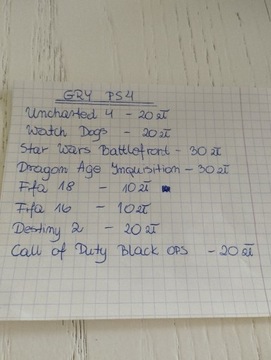 GRY PS4
Uncharted 4 - 20 zł
Watch Dogs - 20 zł
Star Wars Battlefront - 30 zł
Dragon Age Inquisition - 30 zł
Fifa 18 - 10 zł
Fifa 16 - 10 zł
Destiny 2 - 20 zł
Call of Duty Black OPS - 20 zł